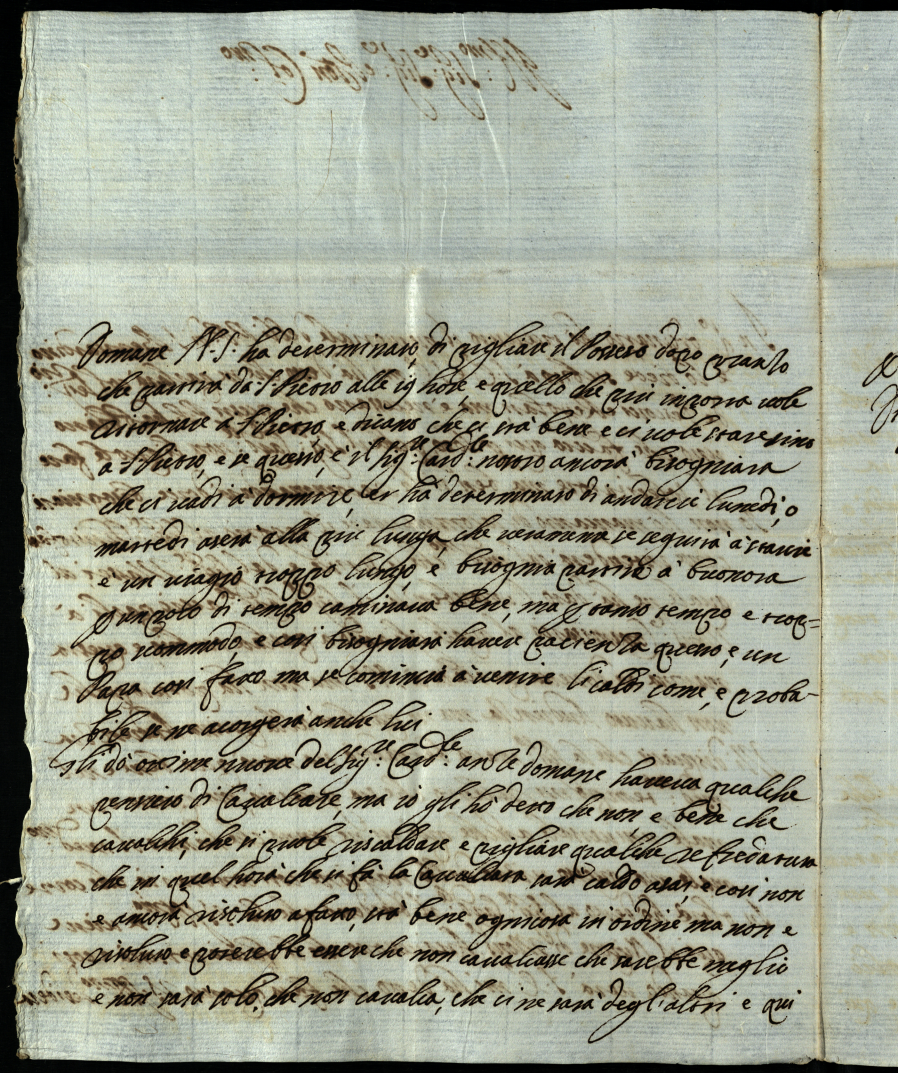 Ill.mo Sig.r Sig.r e Pron Col.mo
Domane N. S. ha determinato, di pigliare il Posseso dopo pranso
che partirà da S. Pietro alle 19 hore, e quello che piu inporta vole
ritornare a S Pietro, e dicano che ci stà bene e ci vole stare sino
a S Pietro, e se questo, è il Sig.re Card.le nostro ancora bisogniara
che ci vadi à dormire, et hà determinato di andarci lunedi, o
martedi aserà alla piu lunga, che veramente se seguita à stare
e un viagio troppo lungo, e bisognia partire à buonora
p un poco di tempo caminava bene, ma p tanto tempo e trop=
po scommodo e cosi bisogniarà havere pacienza questo e, un
Papa cosi fatto, ma se comincia à venire li caldi come, e, proba-
bile se ne acorgerà anche lui
Gli dò ottime nuove del Sig.re Card.le ansi domane haveva qualche
pensiero di Cavalcare, ma io gli hò detto che non, e bene che
cavalchi, che si puole riscaldare e pigliare qualche refredatura
che in quel hora che si fà la Cavalcata sarà caldo asai, e cosi non
e ancora risoluto afatto, stà bene ogniosa in ordine ma non e
risoluto e poterebbe essere che non cavalcasse che sarebbe meglio
e non sarà solo, che non cavalca, che ci ne sarà degl'altri e qui